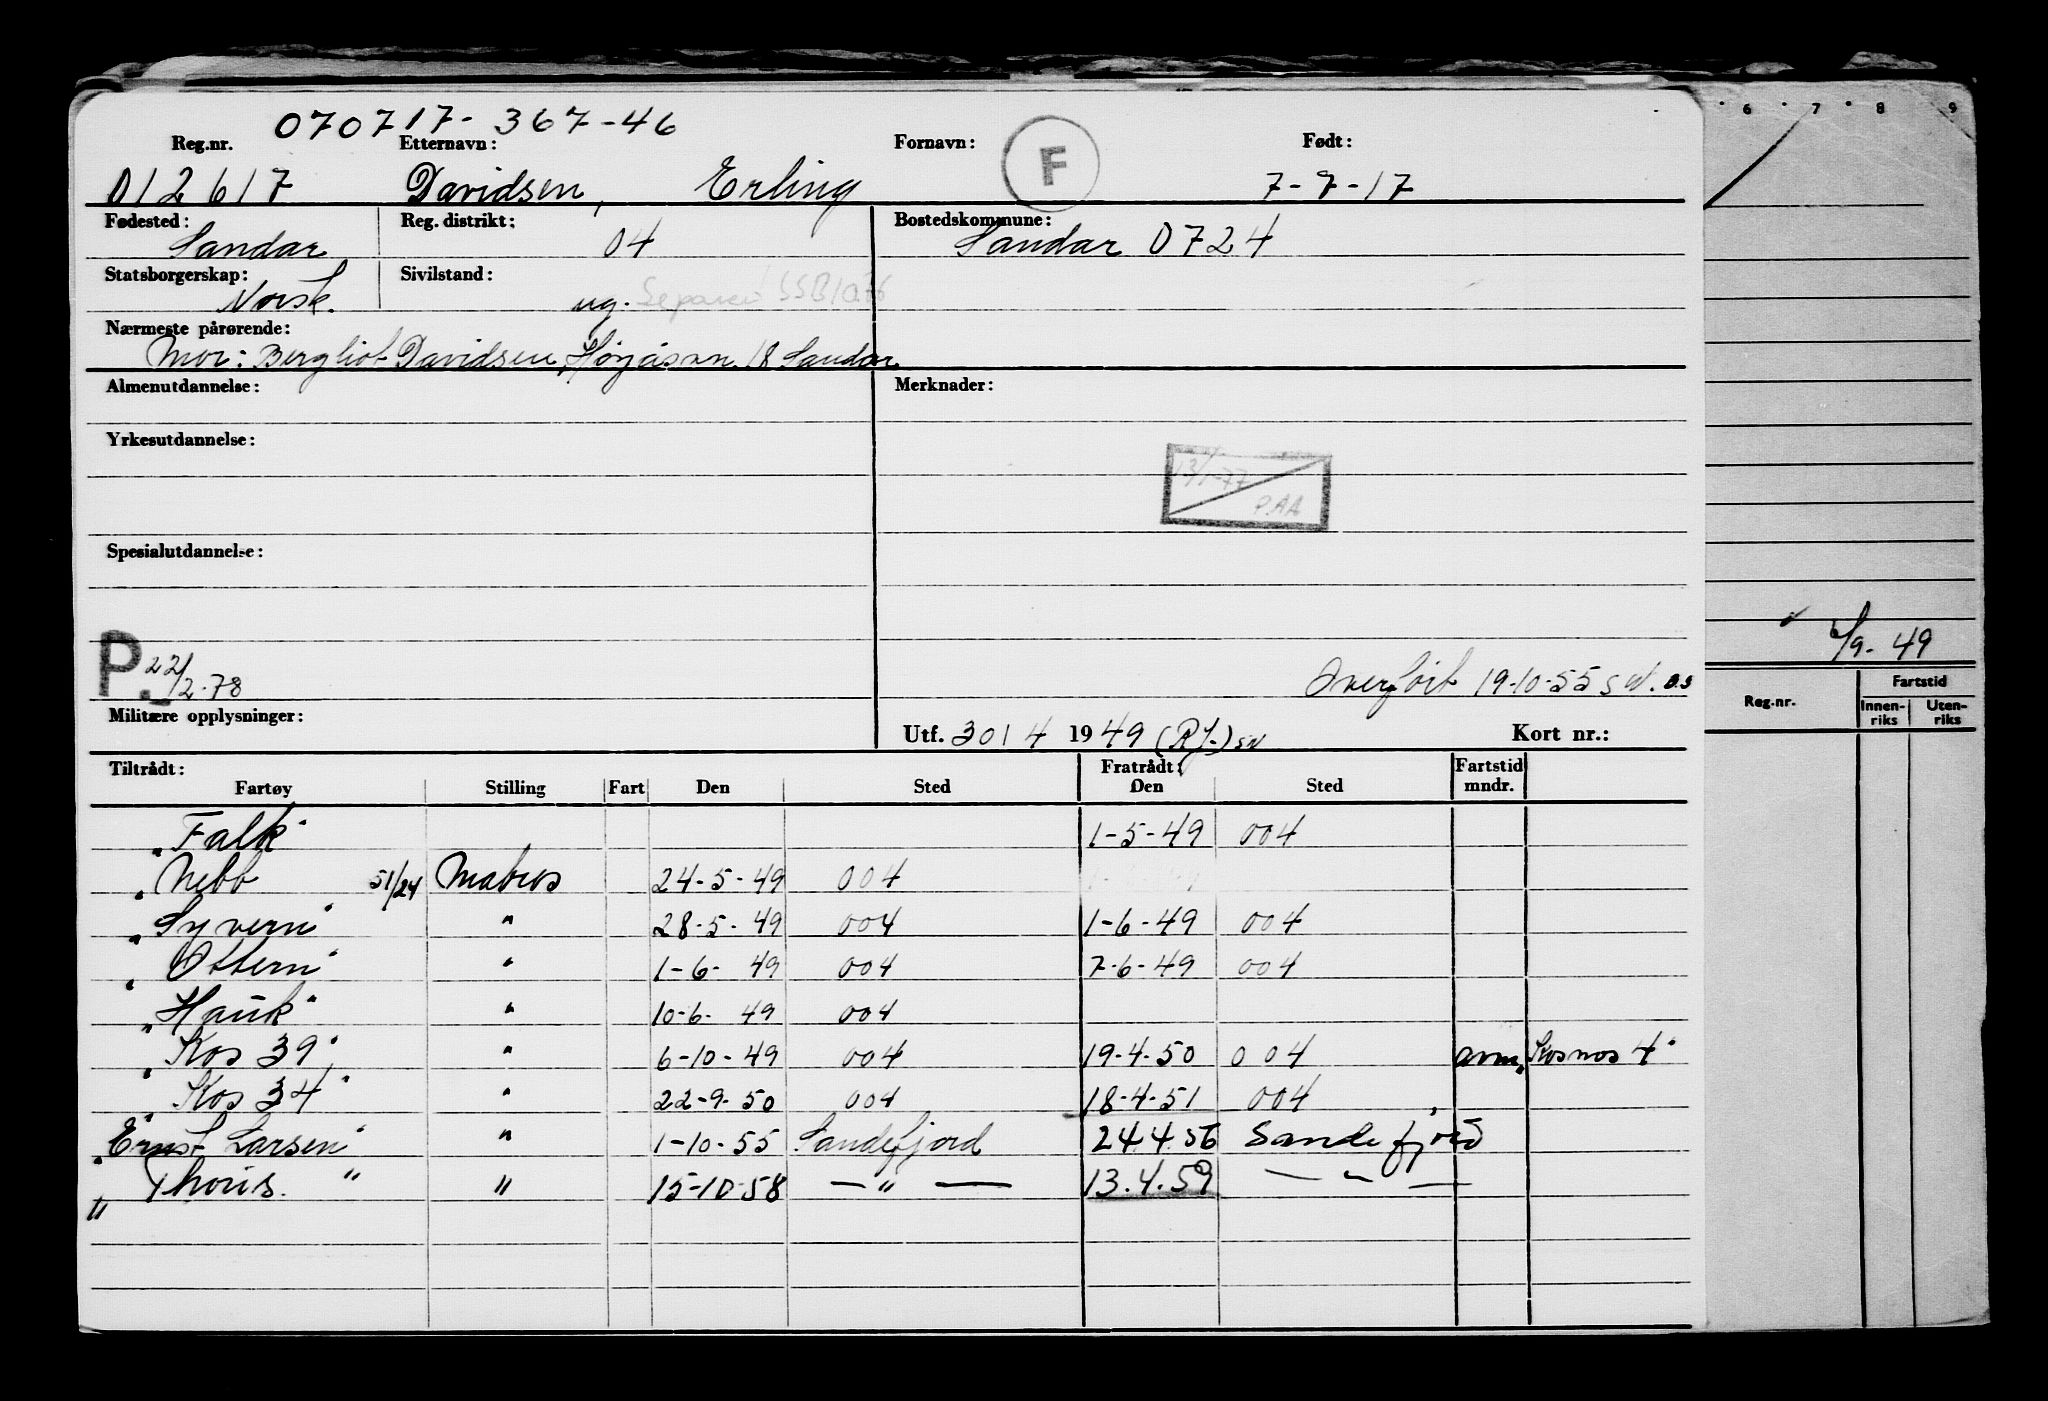 070717-367-46
Reg.nr. Etternavn: Fornavn: F Født:
012617 Davidsen, Erling 7-7-17
Fødested: Reg. distrikt: Bostedskommune:
Sandar 04 Sandar 0724
Statsborgerskap: Sivilstand:
Norsk. ug. Separert SSB/O.76
Nærmeste pårørende:
Mor: Bergliot Davidsen, 18 Sandar
Almenutdannelse: Merknader:
Yrkesutdannelse:
13/1-77
P.AA
Spesialutdannelse:
P. 22/2-78
Overført 19-10-55
Militære opplysninger:
Utf. 30/4 1949 (RJ.) sw Kort nr.:
Tiltrådt: Fratrådt: Fartstid
Fartøy Stilling Fart Den Sted Den Sted mndr.
"Falk" 1-5-49 004
"Nebb 51/24 Matros 24-5-49 004
"Syvern" " 28-5-49 004 1-6-49 004
"Ottern" " 1-6-49 004 7-6-49 004
"Hauk" " 10-6-49 004
"Kos 39" " 6-10-49 004 19-4-50 004 avm. "Kosmos 4"
"Kos 34" " 22-9-50 004 18-4-51 004
"Ernst Larsen" " 1-10-55 Sandefjord 24.4.56 Sandefjord
"Thoris. " " 15-10-58 — " — 13.4.59 — " —
6 7 8 9
6/9-49
Reg.nr. Fartstid
Innen-riks Uten-riks